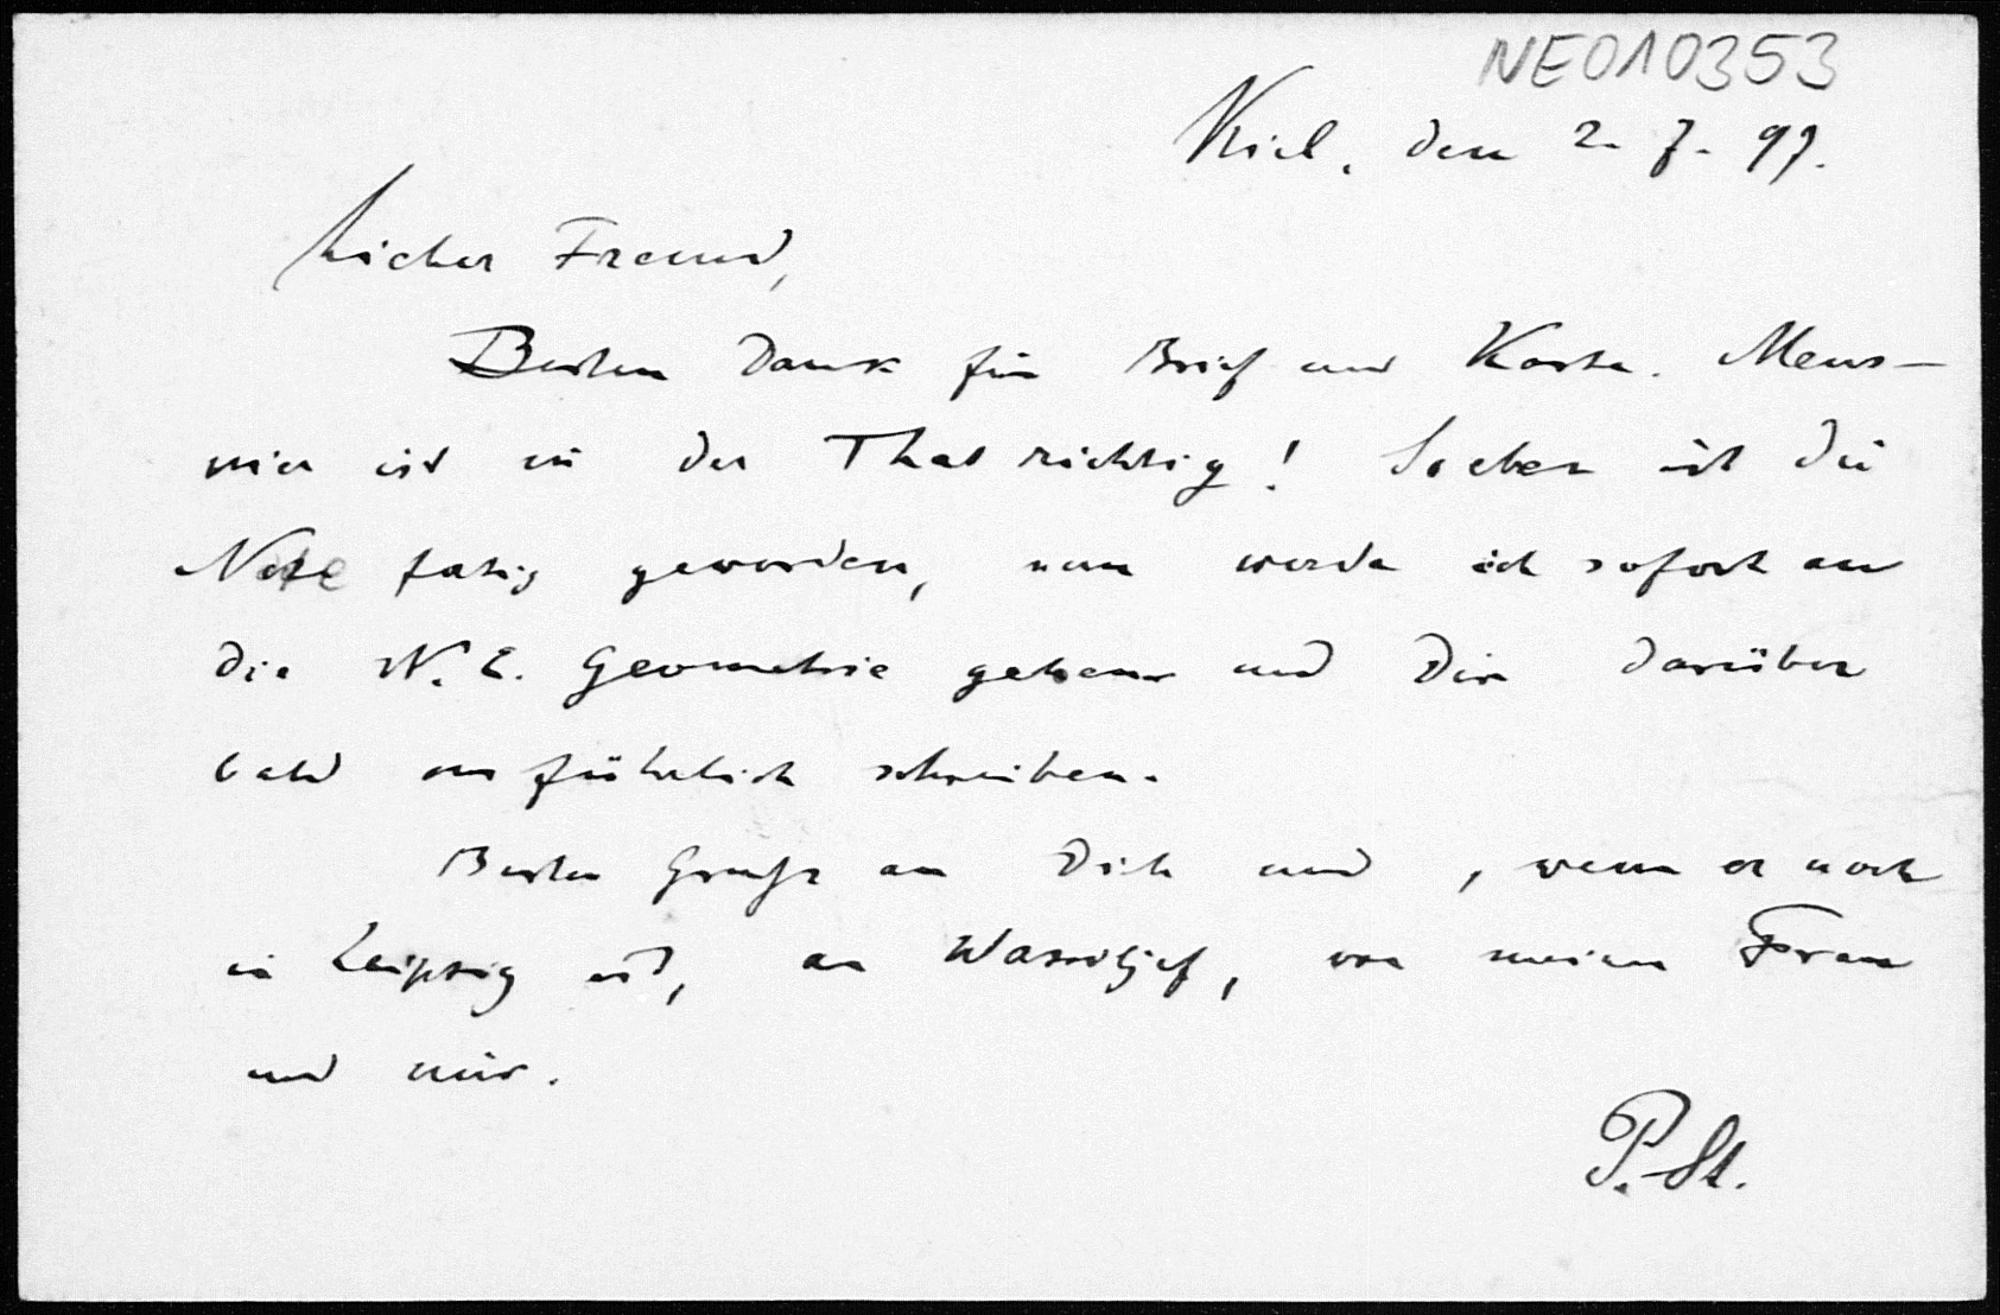 NE010353
Kiel, den 2. 7. 97.
Lieber Freund,
Besten Dank für Brief und Karte. Meus-
nier ist in der That richtig! Soeben ist die
Note fertig geworden, nun werde ich sofort an
die N. E. Geometrie gehen und Dir darüber
bald ausführlich schreiben.
Besten Gruß an Dich und, wenn er noch
in Leipzig ist, an Wassiljef, von meiner Frau
und mir.
P. St.